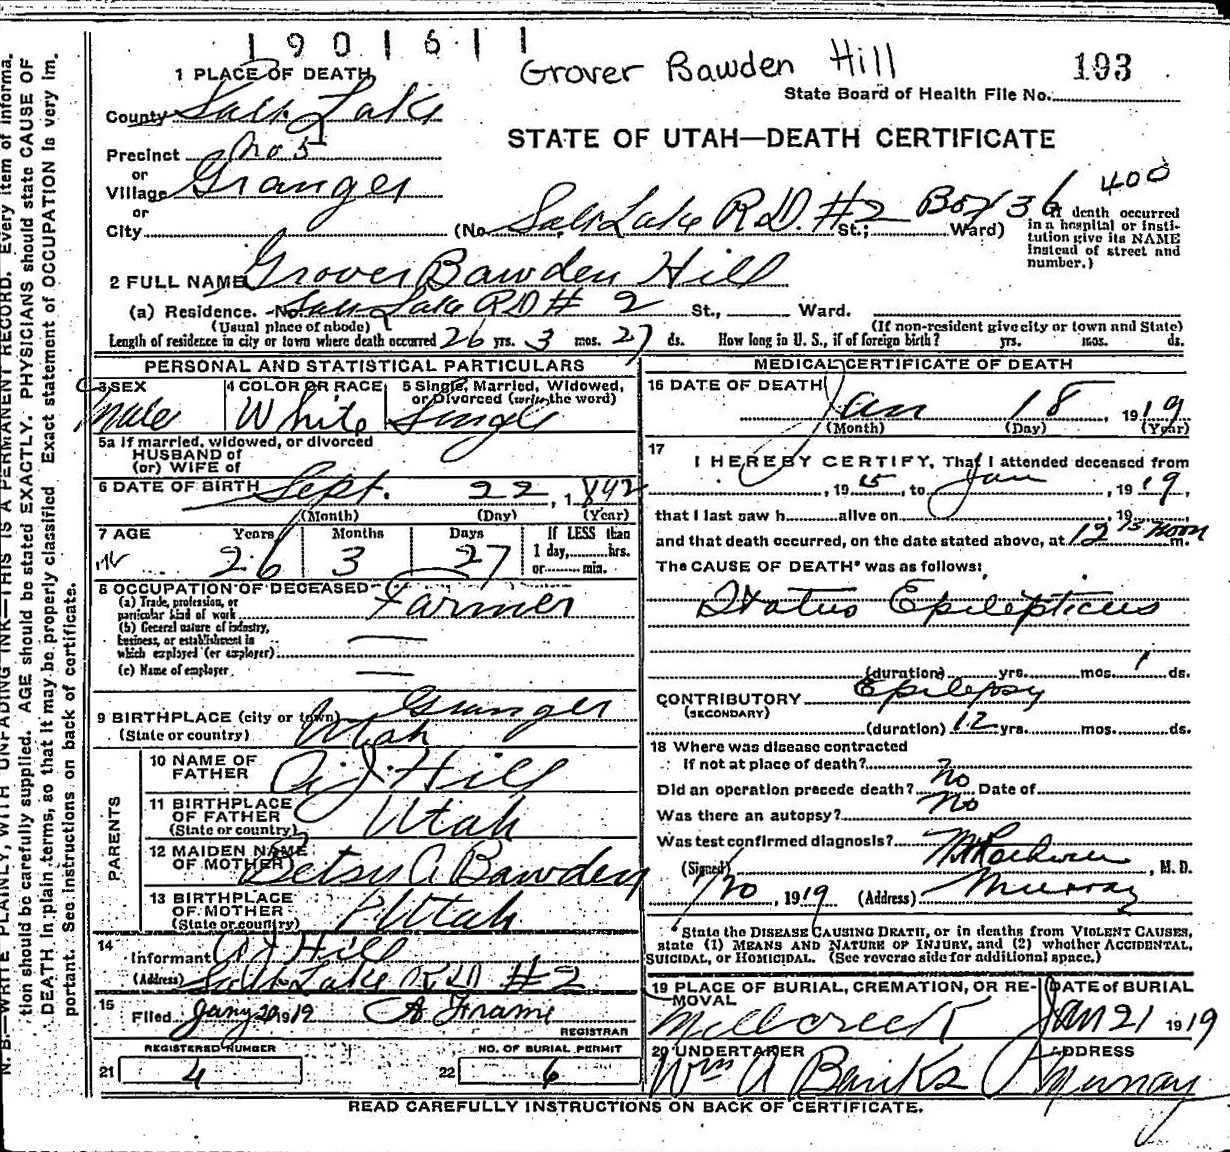 1901611
Grover Bawden Hill
193
State Board of Health File No.
STATE OF UTAH—DEATH CERTIFICATE
1 PLACE OF DEATH
County Salt Lake
Precinct No 5
or
Village Granger
or
City
(No. Salt Lake R.D. #2 Box 36 St.; Ward)
400
If death occurred
in a hospital or insti-
tution give its NAME
instead of street and
number.)
2 FULL NAME Grover Bawden Hill
(a) Residence. No. Salt Lake RD # 2 St., Ward.
(Usual place of abode)
(If non-resident give city or town and State)
Length of residence in city or town where death occurred 26 yrs. 3 mos. 27 ds. How long in U. S., if of foreign birth? yrs. mos. ds.
PERSONAL AND STATISTICAL PARTICULARS
3 SEX
Male
4 COLOR OR RACE
White
5 Single, Married, Widowed,
or Divorced (write the word)
Single
5a If married, widowed, or divorced
HUSBAND of
(or) WIFE of
6 DATE OF BIRTH Sept. 22, 1892
(Month) (Day) (Year)
7 AGE Years Months Days
26 3 27
If LESS than
1 day, hrs.
or min.
8 OCCUPATION OF DECEASED
(a) Trade, profession, or
particular kind of work Farmer
(b) General nature of industry,
business, or establishment in
which employed (or employer)
(c) Name of employer
9 BIRTHPLACE (city or town) Granger
(State or country) Utah
PARENTS
10 NAME OF
FATHER A J Hill
11 BIRTHPLACE
OF FATHER
(State or country) Utah
12 MAIDEN NAME
OF MOTHER Betsy A Bawden
13 BIRTHPLACE
OF MOTHER
(State or country) Utah
14
Informant A J Hill
(Address) Salt Lake RD #2
15 Filed Jany 20 1919 A Frame
REGISTRAR
REGISTERED NUMBER
21 4
NO. OF BURIAL PERMIT
22 6
MEDICAL CERTIFICATE OF DEATH
16 DATE OF DEATH
Jan 18, 1919
(Month) (Day) (Year)
17
I HEREBY CERTIFY, That I attended deceased from
, 1915, to Jan, 1919,
that I last saw h alive on , 19
and that death occurred, on the date stated above, at 12 15 noon m.
The CAUSE OF DEATH* was as follows:
Status Epilepticus
(duration) yrs. mos. 1 ds.
CONTRIBUTORY Epilepsy
(SECONDARY)
(duration) 12 yrs. mos. ds.
18 Where was disease contracted
If not at place of death?
Did an operation precede death? No Date of
Was there an autopsy? No
Was test confirmed diagnosis?
(Signed) , M. D.
1/20, 1919 (Address) Murray
*State the DISEASE CAUSING DEATH, or in deaths from VIOLENT CAUSES,
state (1) MEANS AND NATURE OF INJURY, and (2) whether ACCIDENTAL,
SUICIDAL, or HOMICIDAL. (See reverse side for additional space.)
19 PLACE OF BURIAL, CREMATION, OR RE-
MOVAL
Millcreek
DATE of BURIAL
Jan 21 1919
20 UNDERTAKER
Wm A Banks
ADDRESS
Murray
READ CAREFULLY INSTRUCTIONS ON BACK OF CERTIFICATE.
N. B.—WRITE PLAINLY, WITH UNFADING INK—THIS IS A PERMANENT RECORD. Every item of informa-
tion should be carefully supplied. AGE should be stated EXACTLY. PHYSICIANS should state CAUSE OF
DEATH in plain terms, so that it may be properly classified. Exact statement of OCCUPATION is very im-
portant. See instructions on back of certificate.